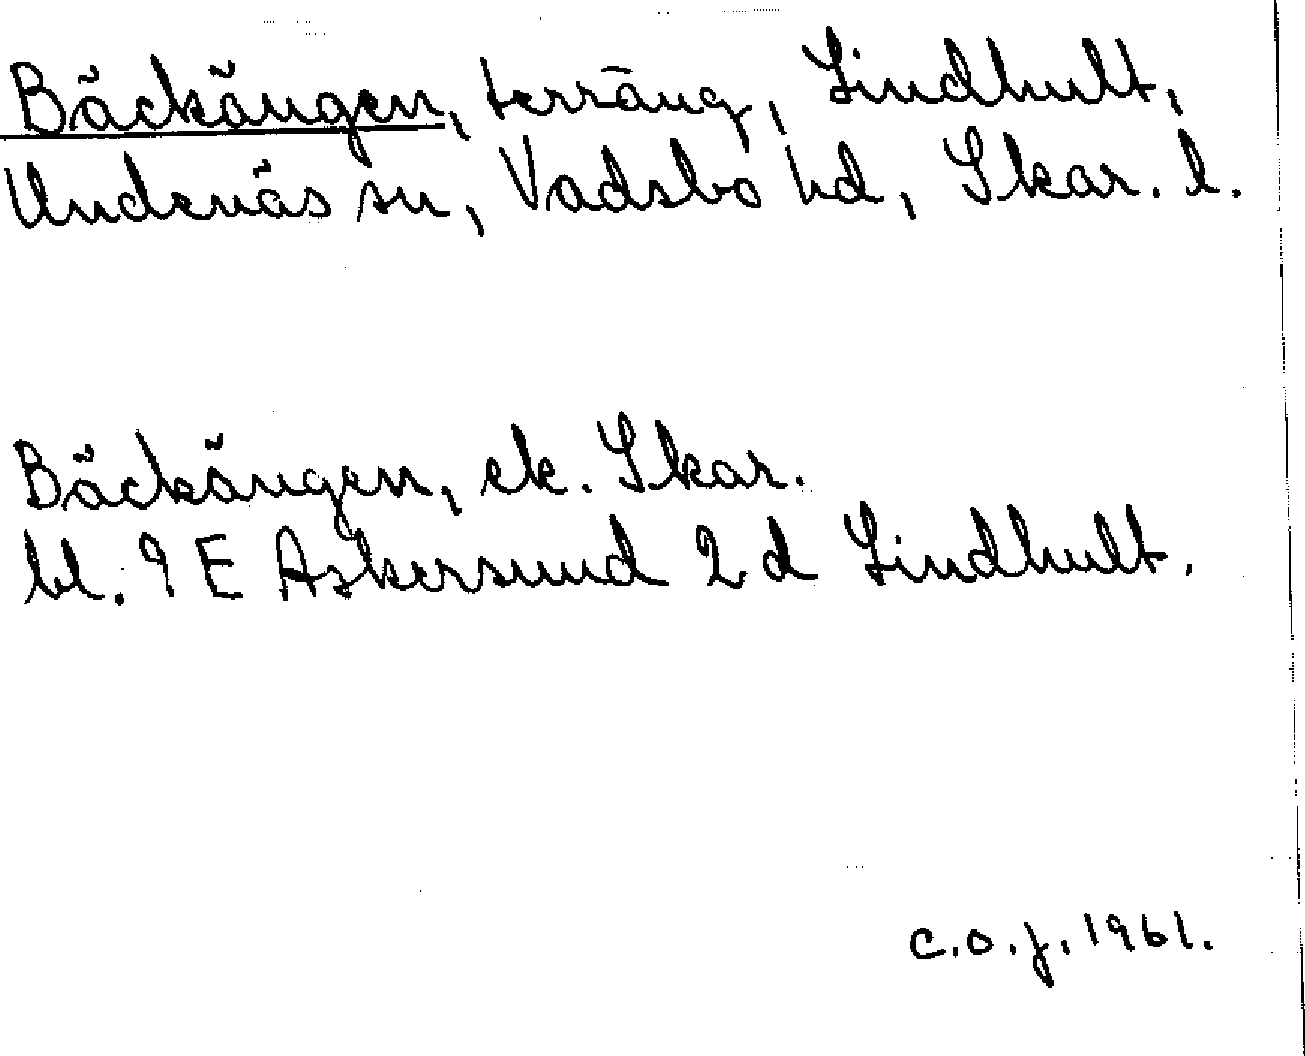 Bäckängen, terräng, Lindhult,
Undenäs sn, Vadsbo hd, Skar. l.
Bäckängen, ek. Skar.
bl. 9 E Askersund 2 d Lindhult.
C.O.J. 1961.